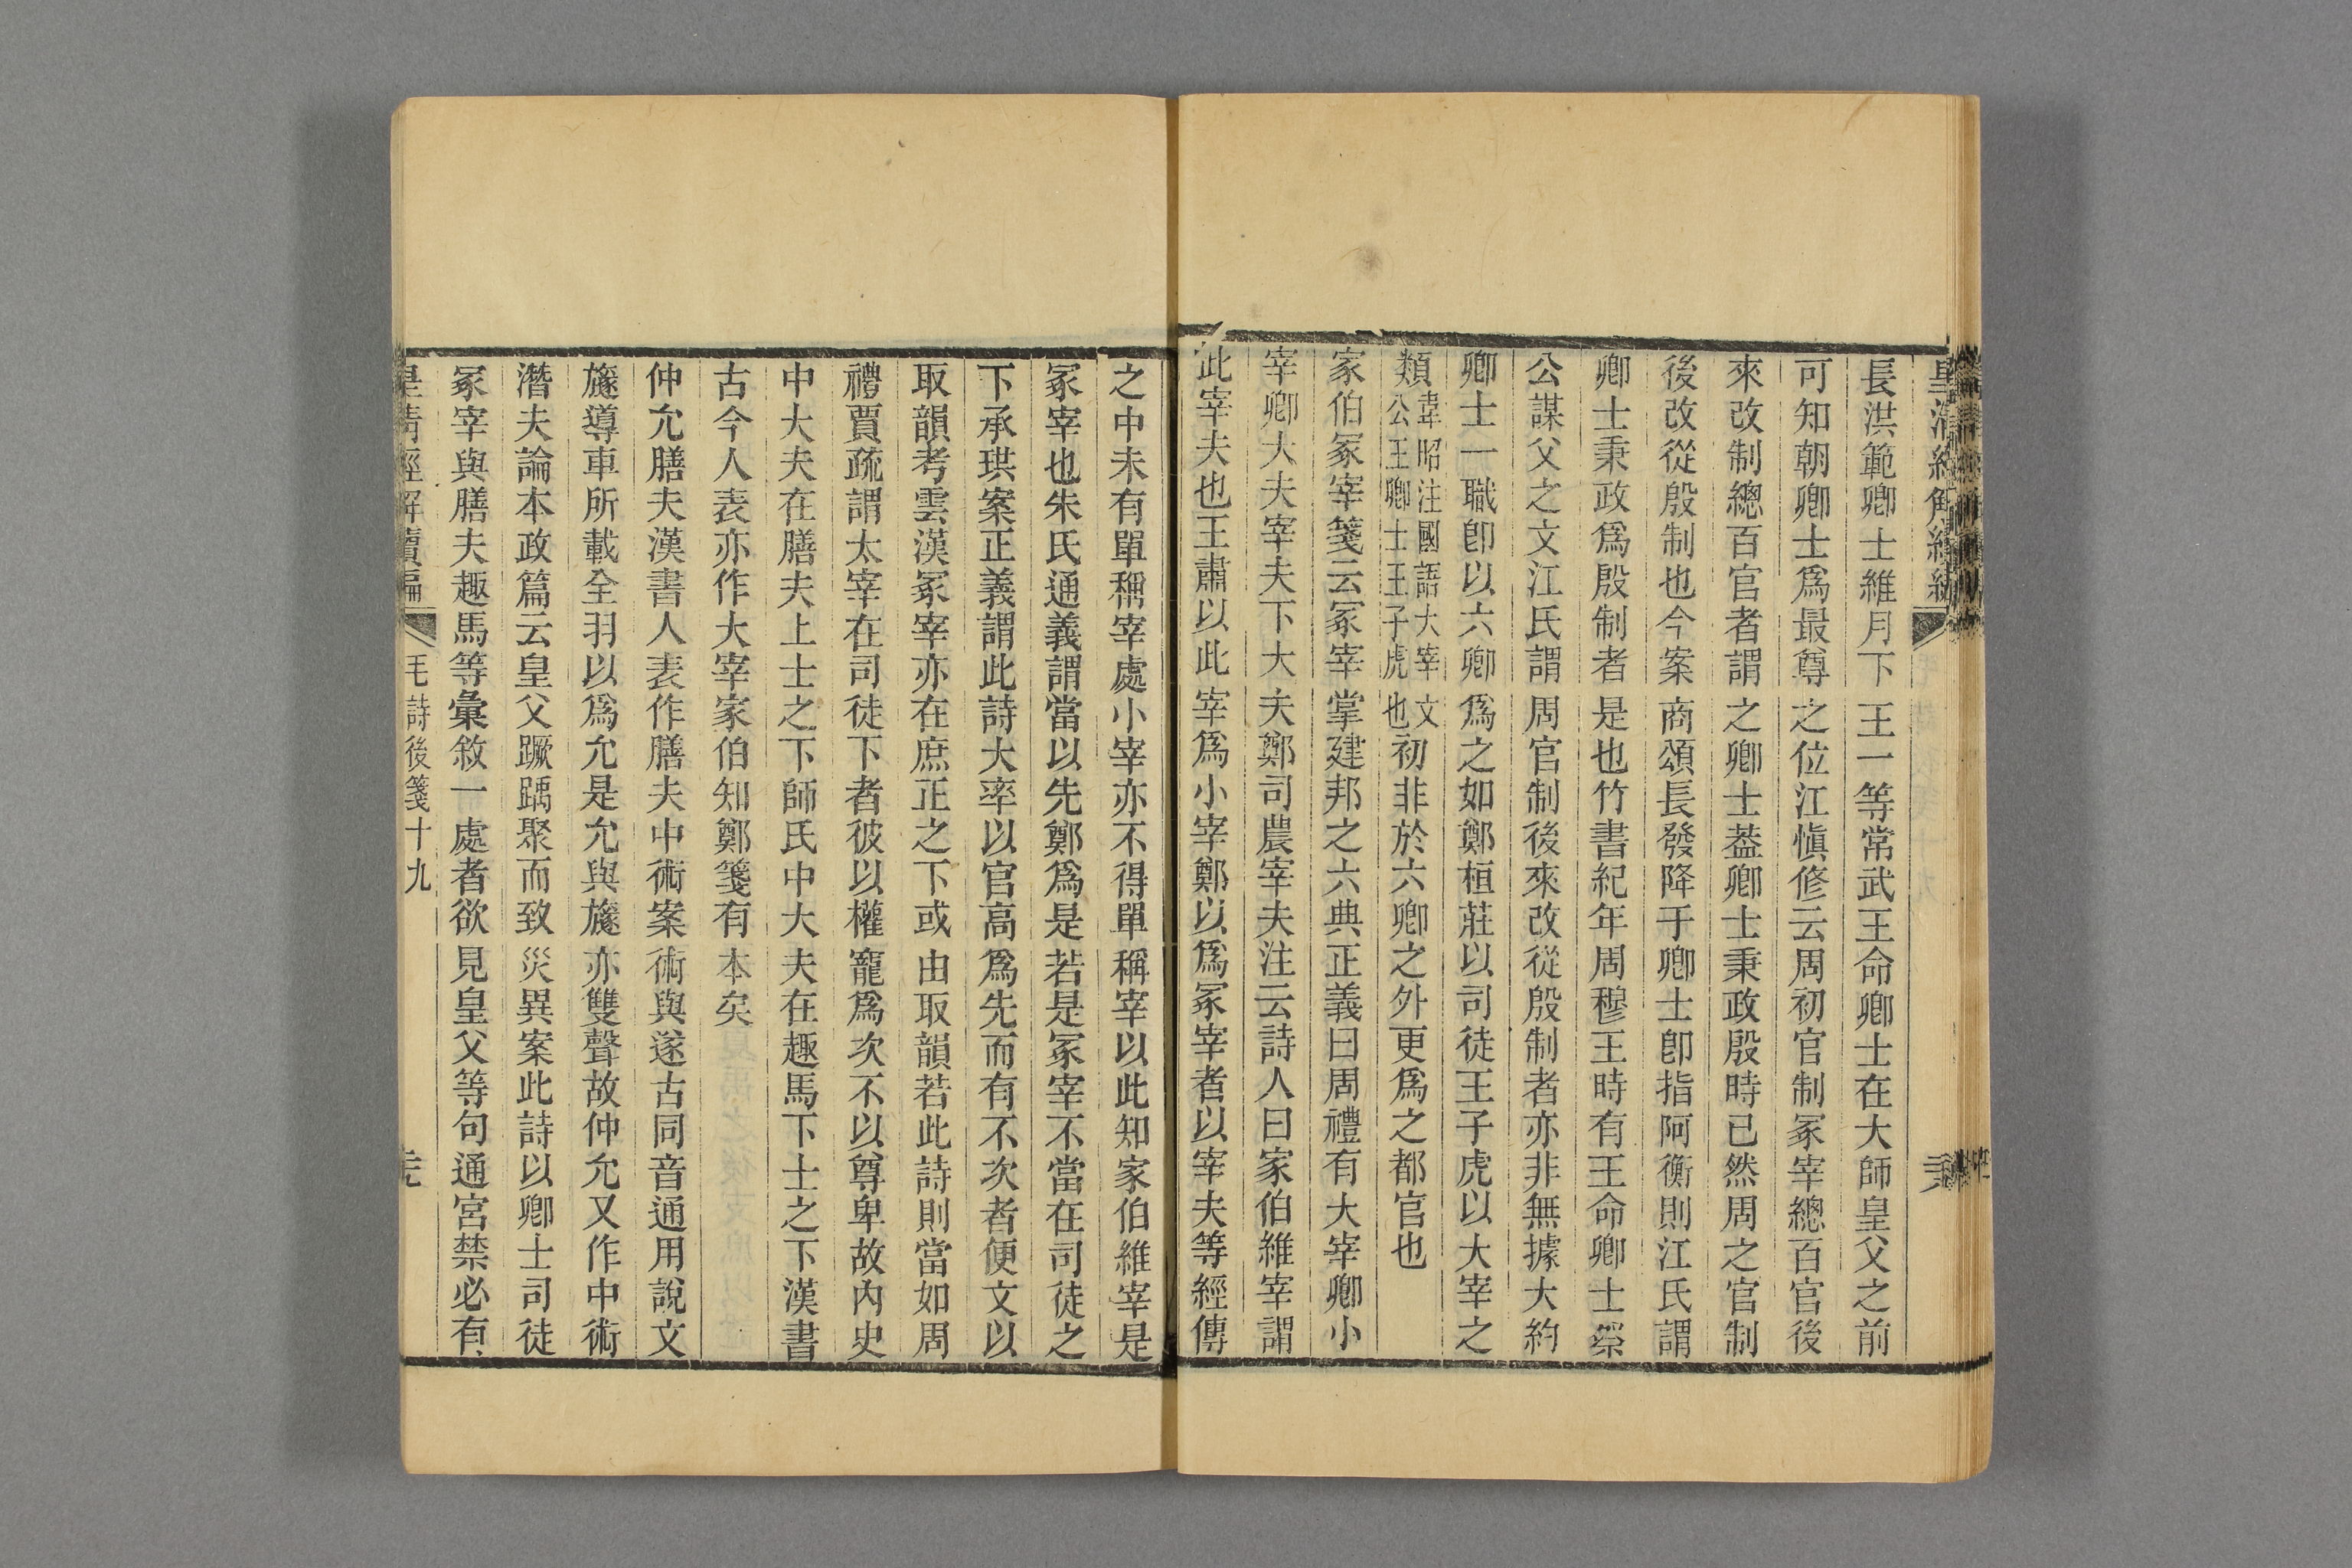 皇清經解續編
長洪範卿士維月下王一等常武王命卿士在大師皇父之前
可知朝卿士爲最尊之位江愼修云周初官制冢宰總百官後
來改制總百官者謂之卿士葢卿士秉政殷時已然周之官制
後改從殷制也今案商頌長發降于卿士卽指阿衡則江氏謂
卿士秉政爲殷制者是也竹書紀年周穆王時有王命卿士祭
公謀父之文江氏謂周官制後來改從殷制者亦非無據大約
卿士一職卽以六卿爲之如鄭桓莊以司徒王子虎以大宰之
類韋昭注國語大宰文公王卿士王子虎也初非於六卿之外更爲之都官也
家伯冢宰箋云冢宰掌建邦之六典正義曰周禮有大宰卿小
宰卿大夫宰夫下大夫鄭司農宰夫注云詩人曰家伯維宰謂
此宰夫也王肅以此宰爲小宰鄭以爲冢宰者以宰夫等經傳
之中未有單稱宰處小宰亦不得單稱宰以此知家伯維宰是
冢宰也朱氏通義謂當以先鄭爲是若是冢宰不當在司徒之
下承珙案正義謂此詩大率以官高爲先而有不次者便文以
取韻考雲漢冢宰亦在庶正之下或由取韻若此詩則當如周
禮賈疏謂太宰在司徒下者彼以權寵爲次不以尊卑故內史
中大夫在膳夫上士之下師氏中大夫在趣馬下士之下漢書
古今人表亦作大宰家伯知鄭箋有本矣
仲允膳夫漢書人表作膳夫中術案術與遂古同音通用說文
旞導車所載全羽以爲允是允與旞亦雙聲故仲允又作中術
潛夫論本政篇云皇父蹶踽聚而致災異案此詩以卿士司徒
冢宰與膳夫趣馬等彙敘一處者欲見皇父等句通宮禁必有
皇清經解續編
毛詩後箋十九